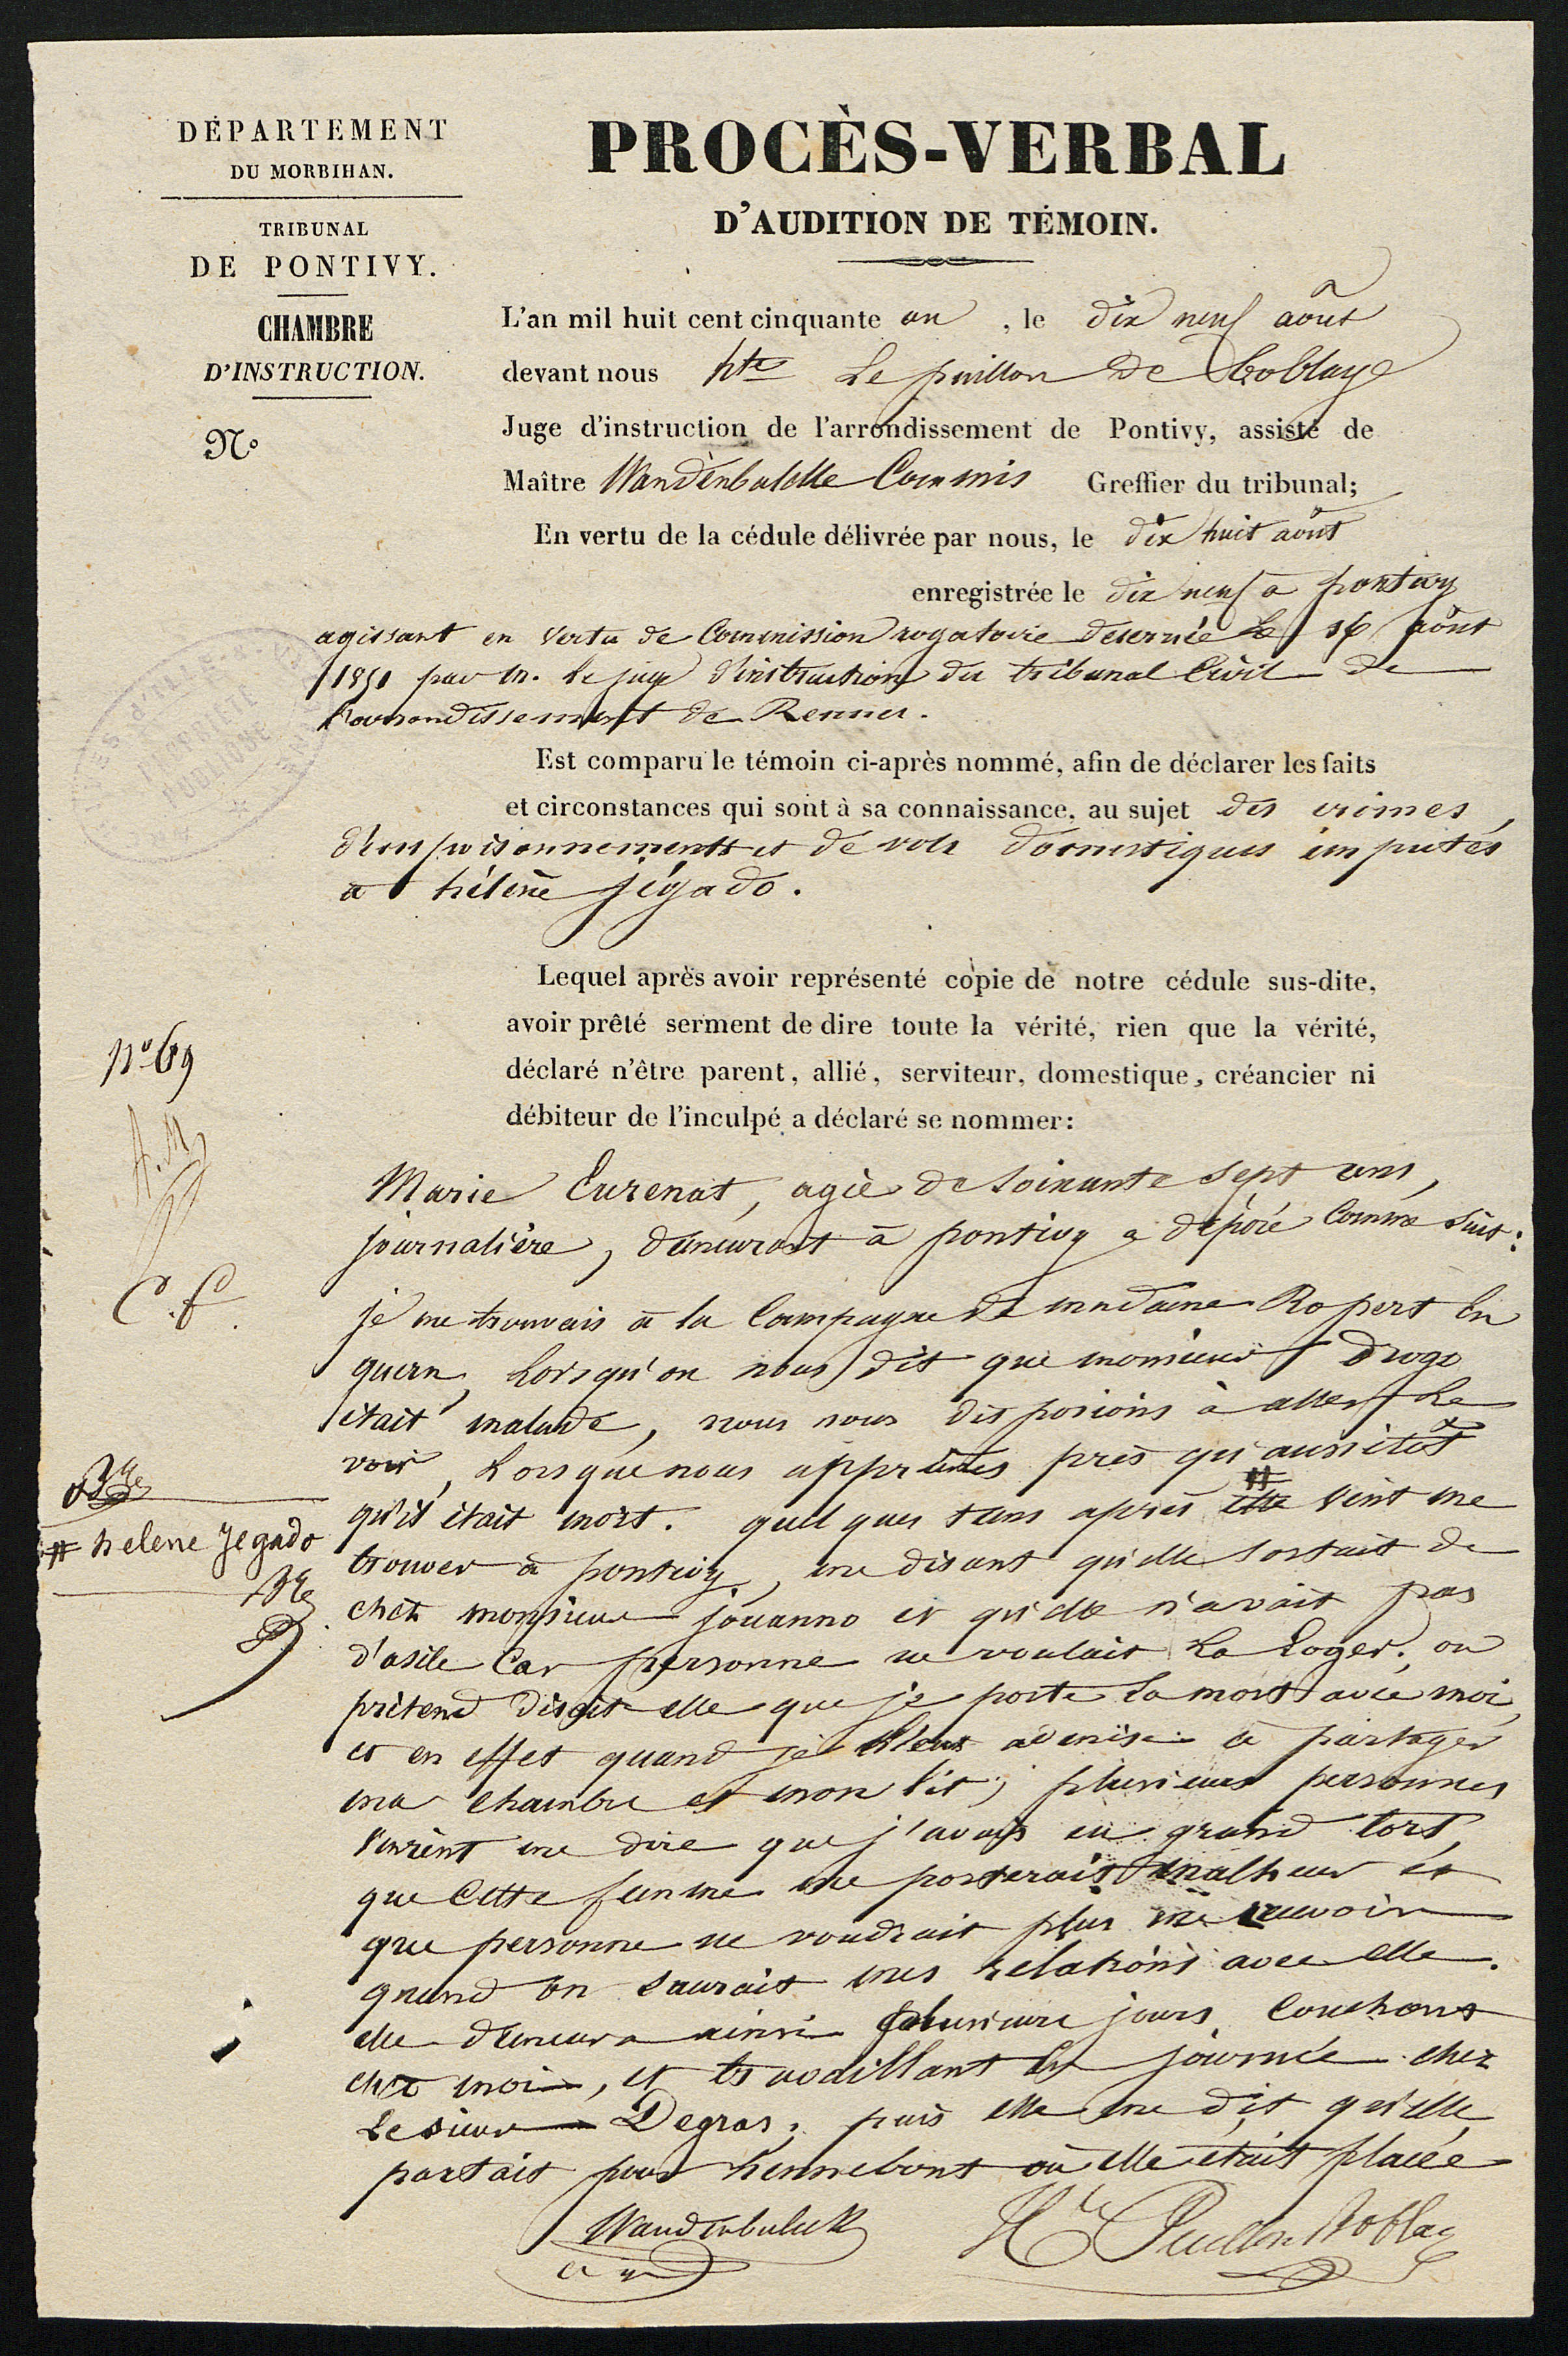 DÉPARTEMENT
DU MORBIHAN.
TRIBUNAL
DE PONTIVY.
CHAMBRE
D'INSTRUCTION.
N°
PROCÈS-VERBAL
D'AUDITION DE TÉMOIN.
L'an mil huit cent cinquante un, le dix neuf août
devant nous hte Le puillon de Boblaye
Juge d'instruction de l'arrondissement de Pontivy, assisté de
Maître Commis Greffier du tribunal;
En vertu de la cédule délivrée par nous, le dix huit août
enregistrée le dix neuf a pontivy
agissant en vertu de Commission rogatoire décernée le 16 août
1851 par m. le juge d'instruction du tribunal Civil de
l'arrondissement de Rennes.
Est comparu le témoin ci-après nommé, afin de déclarer les faits
et circonstances qui sont à sa connaissance, au sujet des crimes
d'empoisonnements et de vols domestiques imputés
a hélène jégado.
Lequel après avoir représenté copie de notre cédule sus-dite,
avoir prêté serment de dire toute la vérité, rien que la vérité,
déclaré n'être parent, allié, serviteur, domestique, créancier ni
débiteur de l'inculpé a déclaré se nommer:
n° 69
A. M
C. f.
Marie Eurenat, agée de soixante sept ans,
journalière, demeurant à pontivy a déposé Comme suit:
je me trouvais à la Campagne de madame Ropert En
guern, lorsqu'on nous dit que monsieur Drogo
était malade, nous nous disposions à aller le
voir, lorsque nous apprîmes près qu'aussitôt
qu'il était mort. quelques tems après elle # vint me
# helene Jegado
trouver à pontivy, me disant qu'elle sortait de
chez monsieur jouanno et qu'elle n'avait pas
d'asile Car personne ne voulait la loger; on
prétend disait elle que je porte la mort avec moi,
et en effet quand je l'eus admise à partager
ma chambre et mon lit; plusieurs personnes
vinrent me dire que j'avais eu grand tort,
que Cette femme me porterait malheur et
que personne ne voudrait plus me recevoir
quand on saurait mes relations avec elle.
elle demeura ainsi plusieurs jours Couchant
chez moi, et travaillant la journée chez
le sieur Degras; puis elle me dit qu'elle
partait pour hennebont où elle était placée
Wandenbulck
Hte Puillon Boblaye